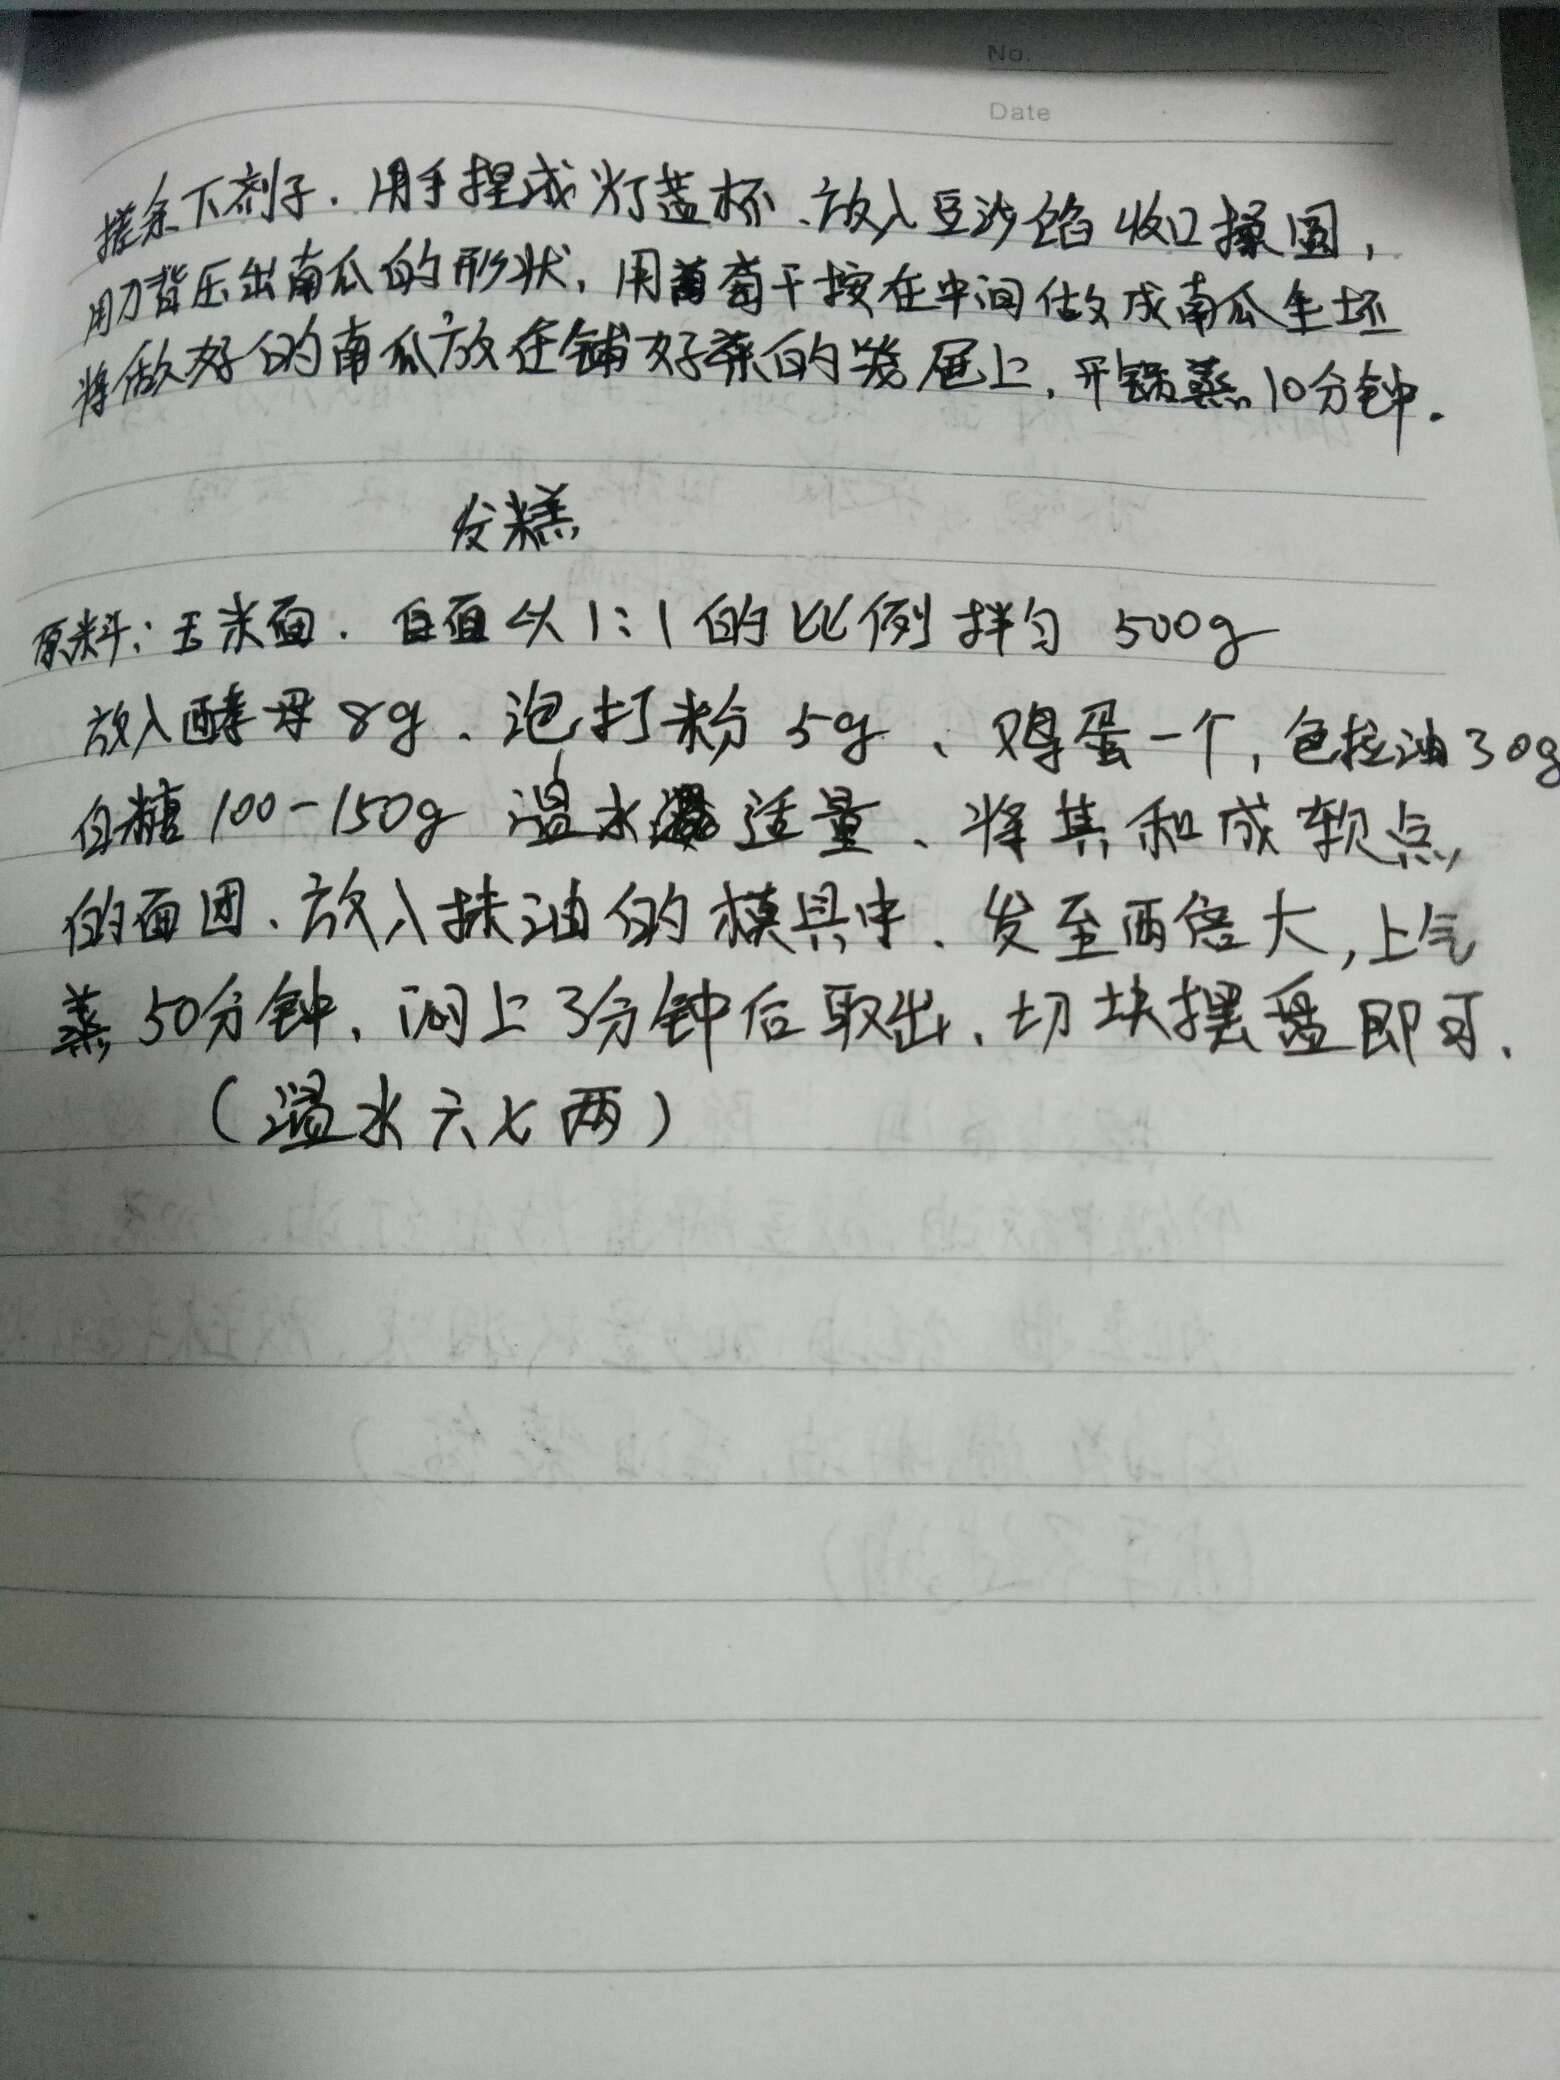 No.
Date
搓条下剂子.用手捏成灯盏杯、放入豆沙馅收口揉圆,
用刀背压出南瓜的形状,用葡萄干按在中间做成南瓜生坯
将做好的南瓜放在铺好布的笼屉上,开锅蒸10分钟.
发糕
原料:玉米面.白面以1:1的比例拌匀 500g
放入酵母8g、泡打粉5g、鸡蛋一个,色拉油30g
白糖100-150g 温水适量、将其和成软点
的面团、放入抹油的模具中、发至两倍大,上气
蒸50分钟,闷上3分钟后取出、切块摆盘即可.
(温水六七两)